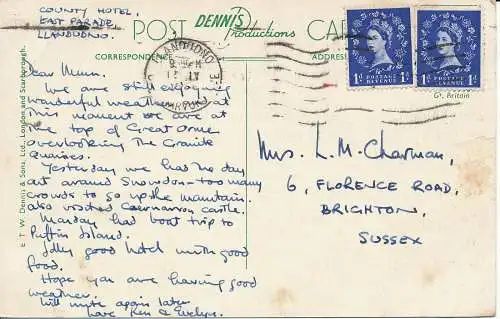 COUNTY HOTEL,
EAST PARADE,
LLANDUDNO.
POST DENNIS Productions CARD
CORRESPONDENCE
ADDRESS
LLANDUDNO
POSTAGE REVENUE
1D 1D
POSTAGE REVENUE
1D 1D
Gt. Britain
Dear Mum.
We are still enjoying
wonderful weather at
this moment we are at
the top of Great Orme
overlooking the Granite
Quarries.
Yesterday we had the day
out around Snowdon - too many
crowds to go up the mountain.
also visited Caernarvon castle.
Monday had boat trip to
Puffin Island.
Jolly good hotel with good
food.
Hope you are having good
weather.
Will write again later
love Ken & Evelyn.
Mrs. L. M. Charman,
6, FLORENCE ROAD,
BRIGHTON,
SUSSEX
E. T. W. Dennis & Sons, Ltd., London and Scarborough.